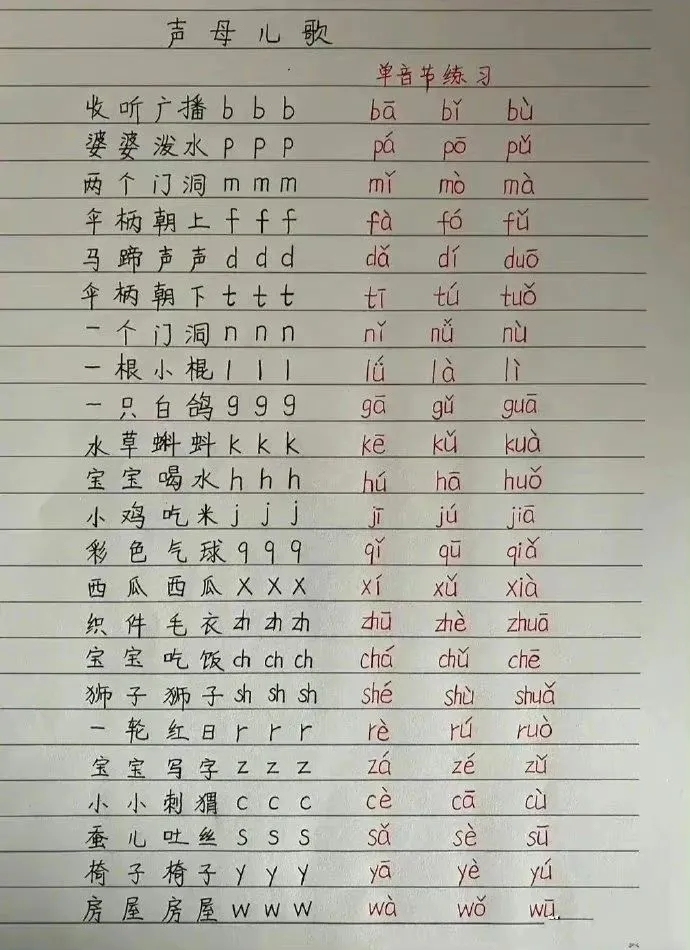 声母儿歌
单音节练习
收听广播 b b b bā bǐ bù
婆婆泼水 p p p pá pō pǔ
两个门洞 m m m mǐ mò mà
伞柄朝上 f f f fà fó fǔ
马蹄声声 d d d dǎ dí duō
伞柄朝下 t t t tī tú tuǒ
一个门洞 n n n nǐ nǚ nù
一根小棍 l l l lǘ là lì
一只白鸽 g g g gā gǔ guā
水草蝌蚪 k k k kē kǔ kuà
宝宝喝水 h h h hú hā huǒ
小鸡吃米 j j j jī jú jiā
彩色气球 q q q qǐ qū qiǎ
西瓜西瓜 x x x xí xǔ xià
织件毛衣 zh zh zh zhū zhè zhuā
宝宝吃饭 ch ch ch chá chǔ chē
狮子狮子 sh sh sh shé shù shuǎ
一轮红日 r r r rè rú ruò
宝宝写字 z z z zá zé zǔ
小小刺猬 c c c cè cā cù
蚕儿吐丝 s s s sǎ sè sū
椅子椅子 y y y yā yè yú
房屋房屋 w w w wà wǒ wū